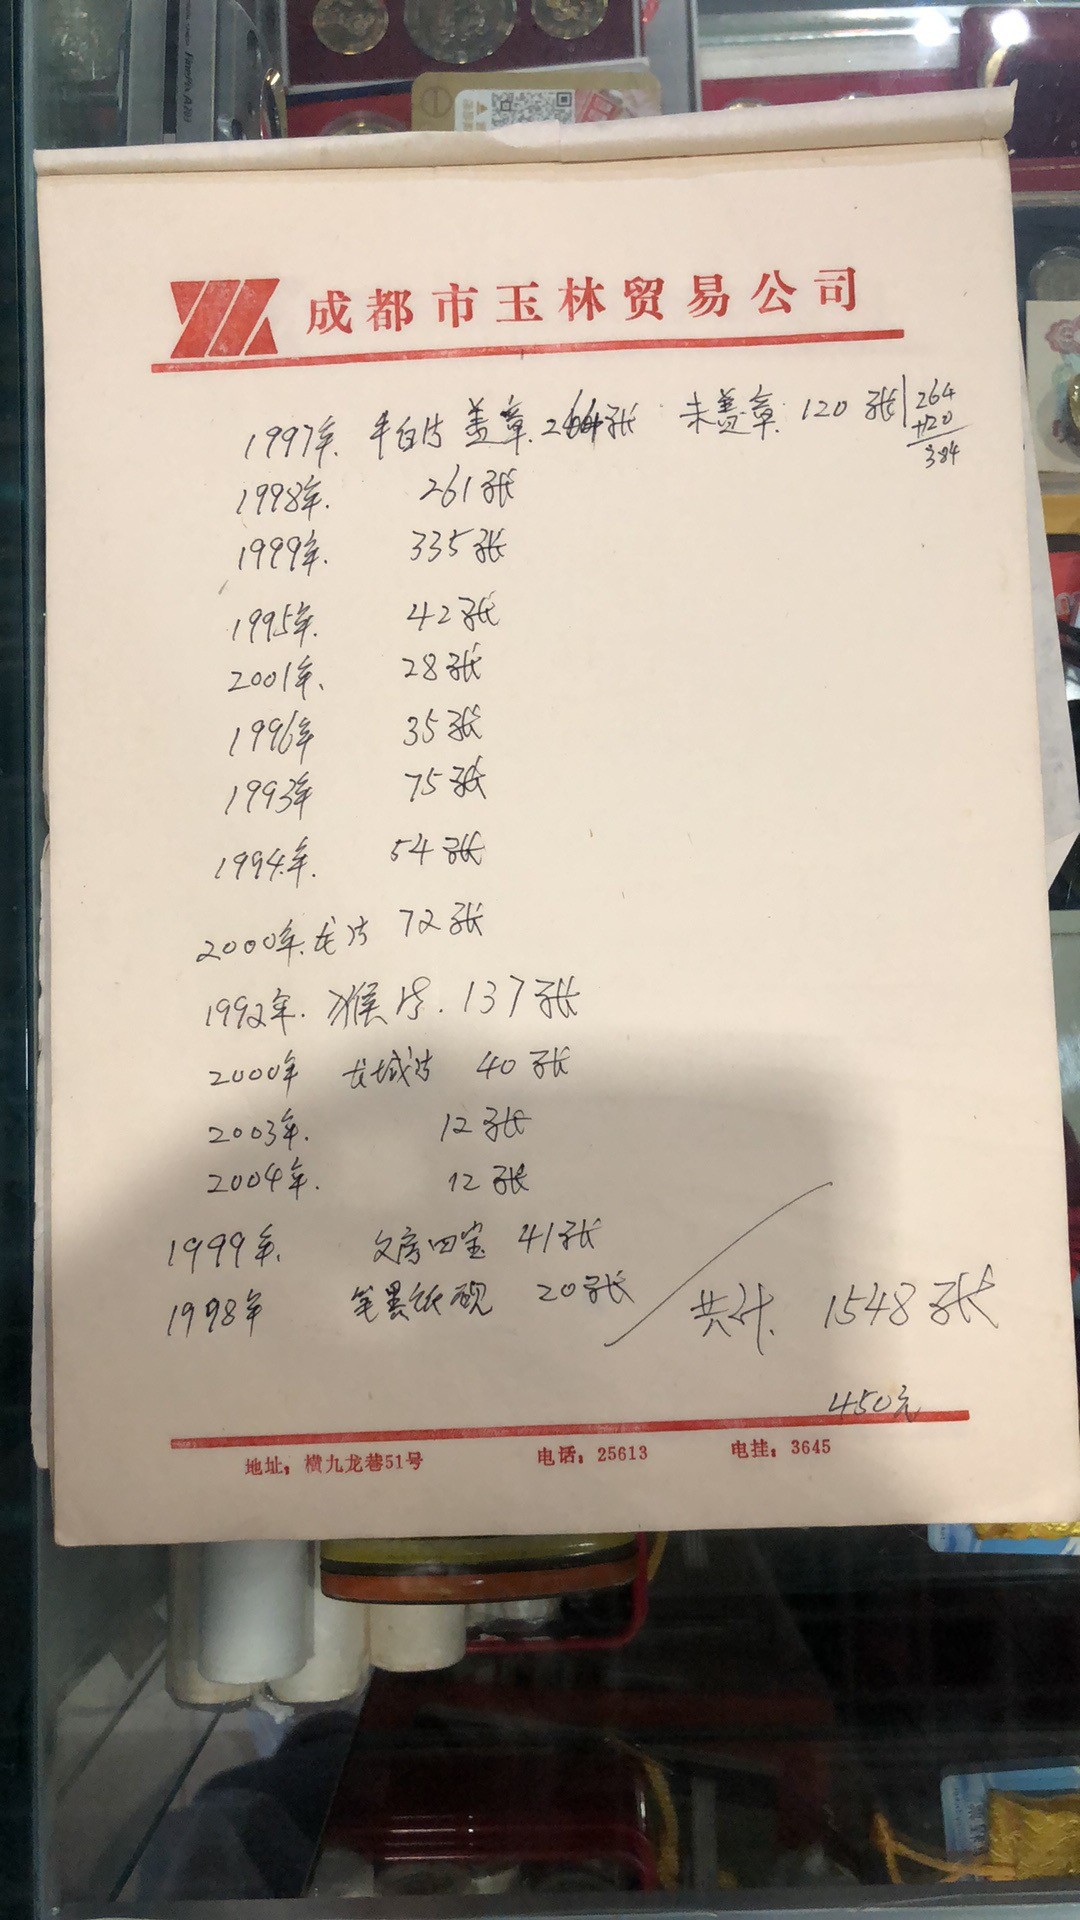 Faneris A20J
成都市玉林贸易公司
1997年. 半白片 盖章.264张 未盖章. 120 张 264
+120
384
1998年. 261张
1999年. 335张
1995年. 42张
2001年、 28张
1996年 35张
1993年 75张
1994年. 54张
2000年.龙片 72张
1992年. 猴片. 137张
2000年 长城片 40张
2003年. 12张
2004年. 12张
1999年. 文房四宝 41张
1998年 笔墨纸砚 20张
共计. 1548张
450元
地址：横九龙巷51号 电话：25613 电挂：3645